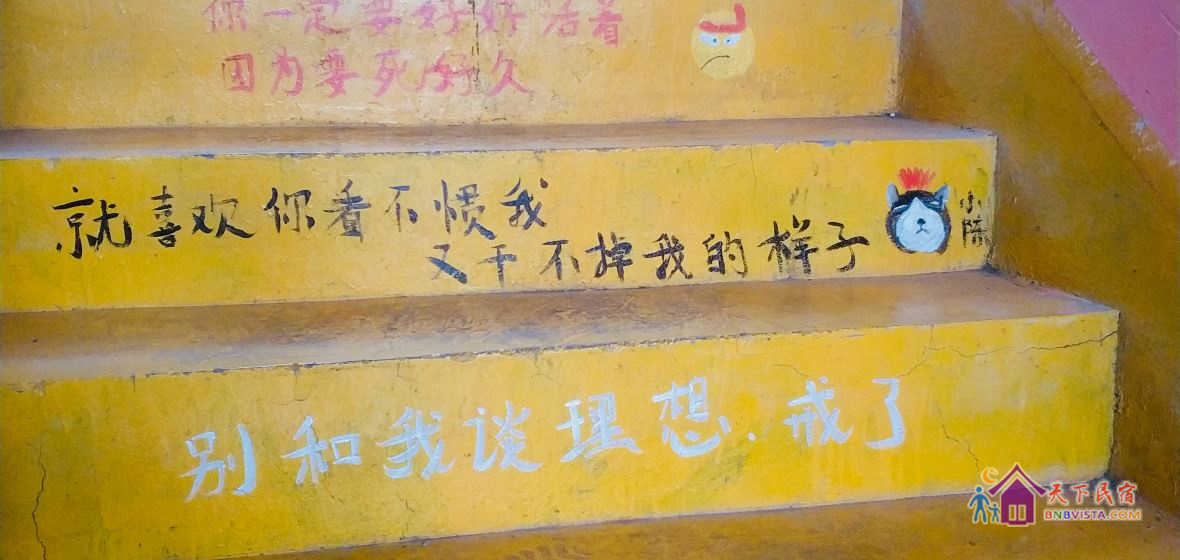 你一定要好好活着
因为要死好久
就喜欢你看不惯我
又干不掉我的样子
小陈
别和我谈理想、戒了
天下民宿
BNBVISTA.COM